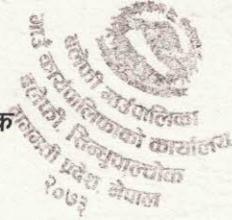 बलेफी गाउँपालिका
गाउँ कार्यपालिकाको कार्यालय
बलेफी, सिन्धुपाल्चोक
बागमती प्रदेश, नेपाल
२०७३
क